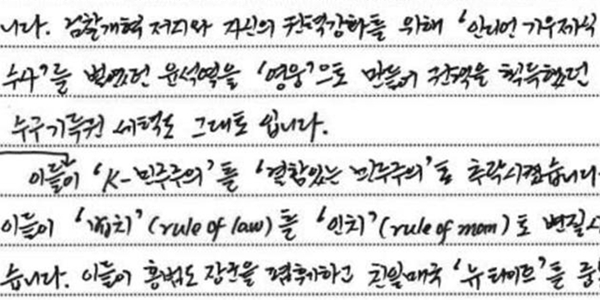 니다. 검찰개혁 저지와 자신의 권력강화를 위해 '인디언 기우제식
수사'를 벌였던 윤석열을 '영웅'으로 만들어 권력을 획득했던
수구기득권 세력도 그대로 입니다.
이들이 'K-민주주의'를 '결함있는 민주주의'로 추락시켰습니다
이들이 '법치' (rule of law)를 '인치' (rule of man)로 변질시
습니다. 이들이 홍범도 장군을 폄훼하고 친일매국 '뉴라이트'를 중